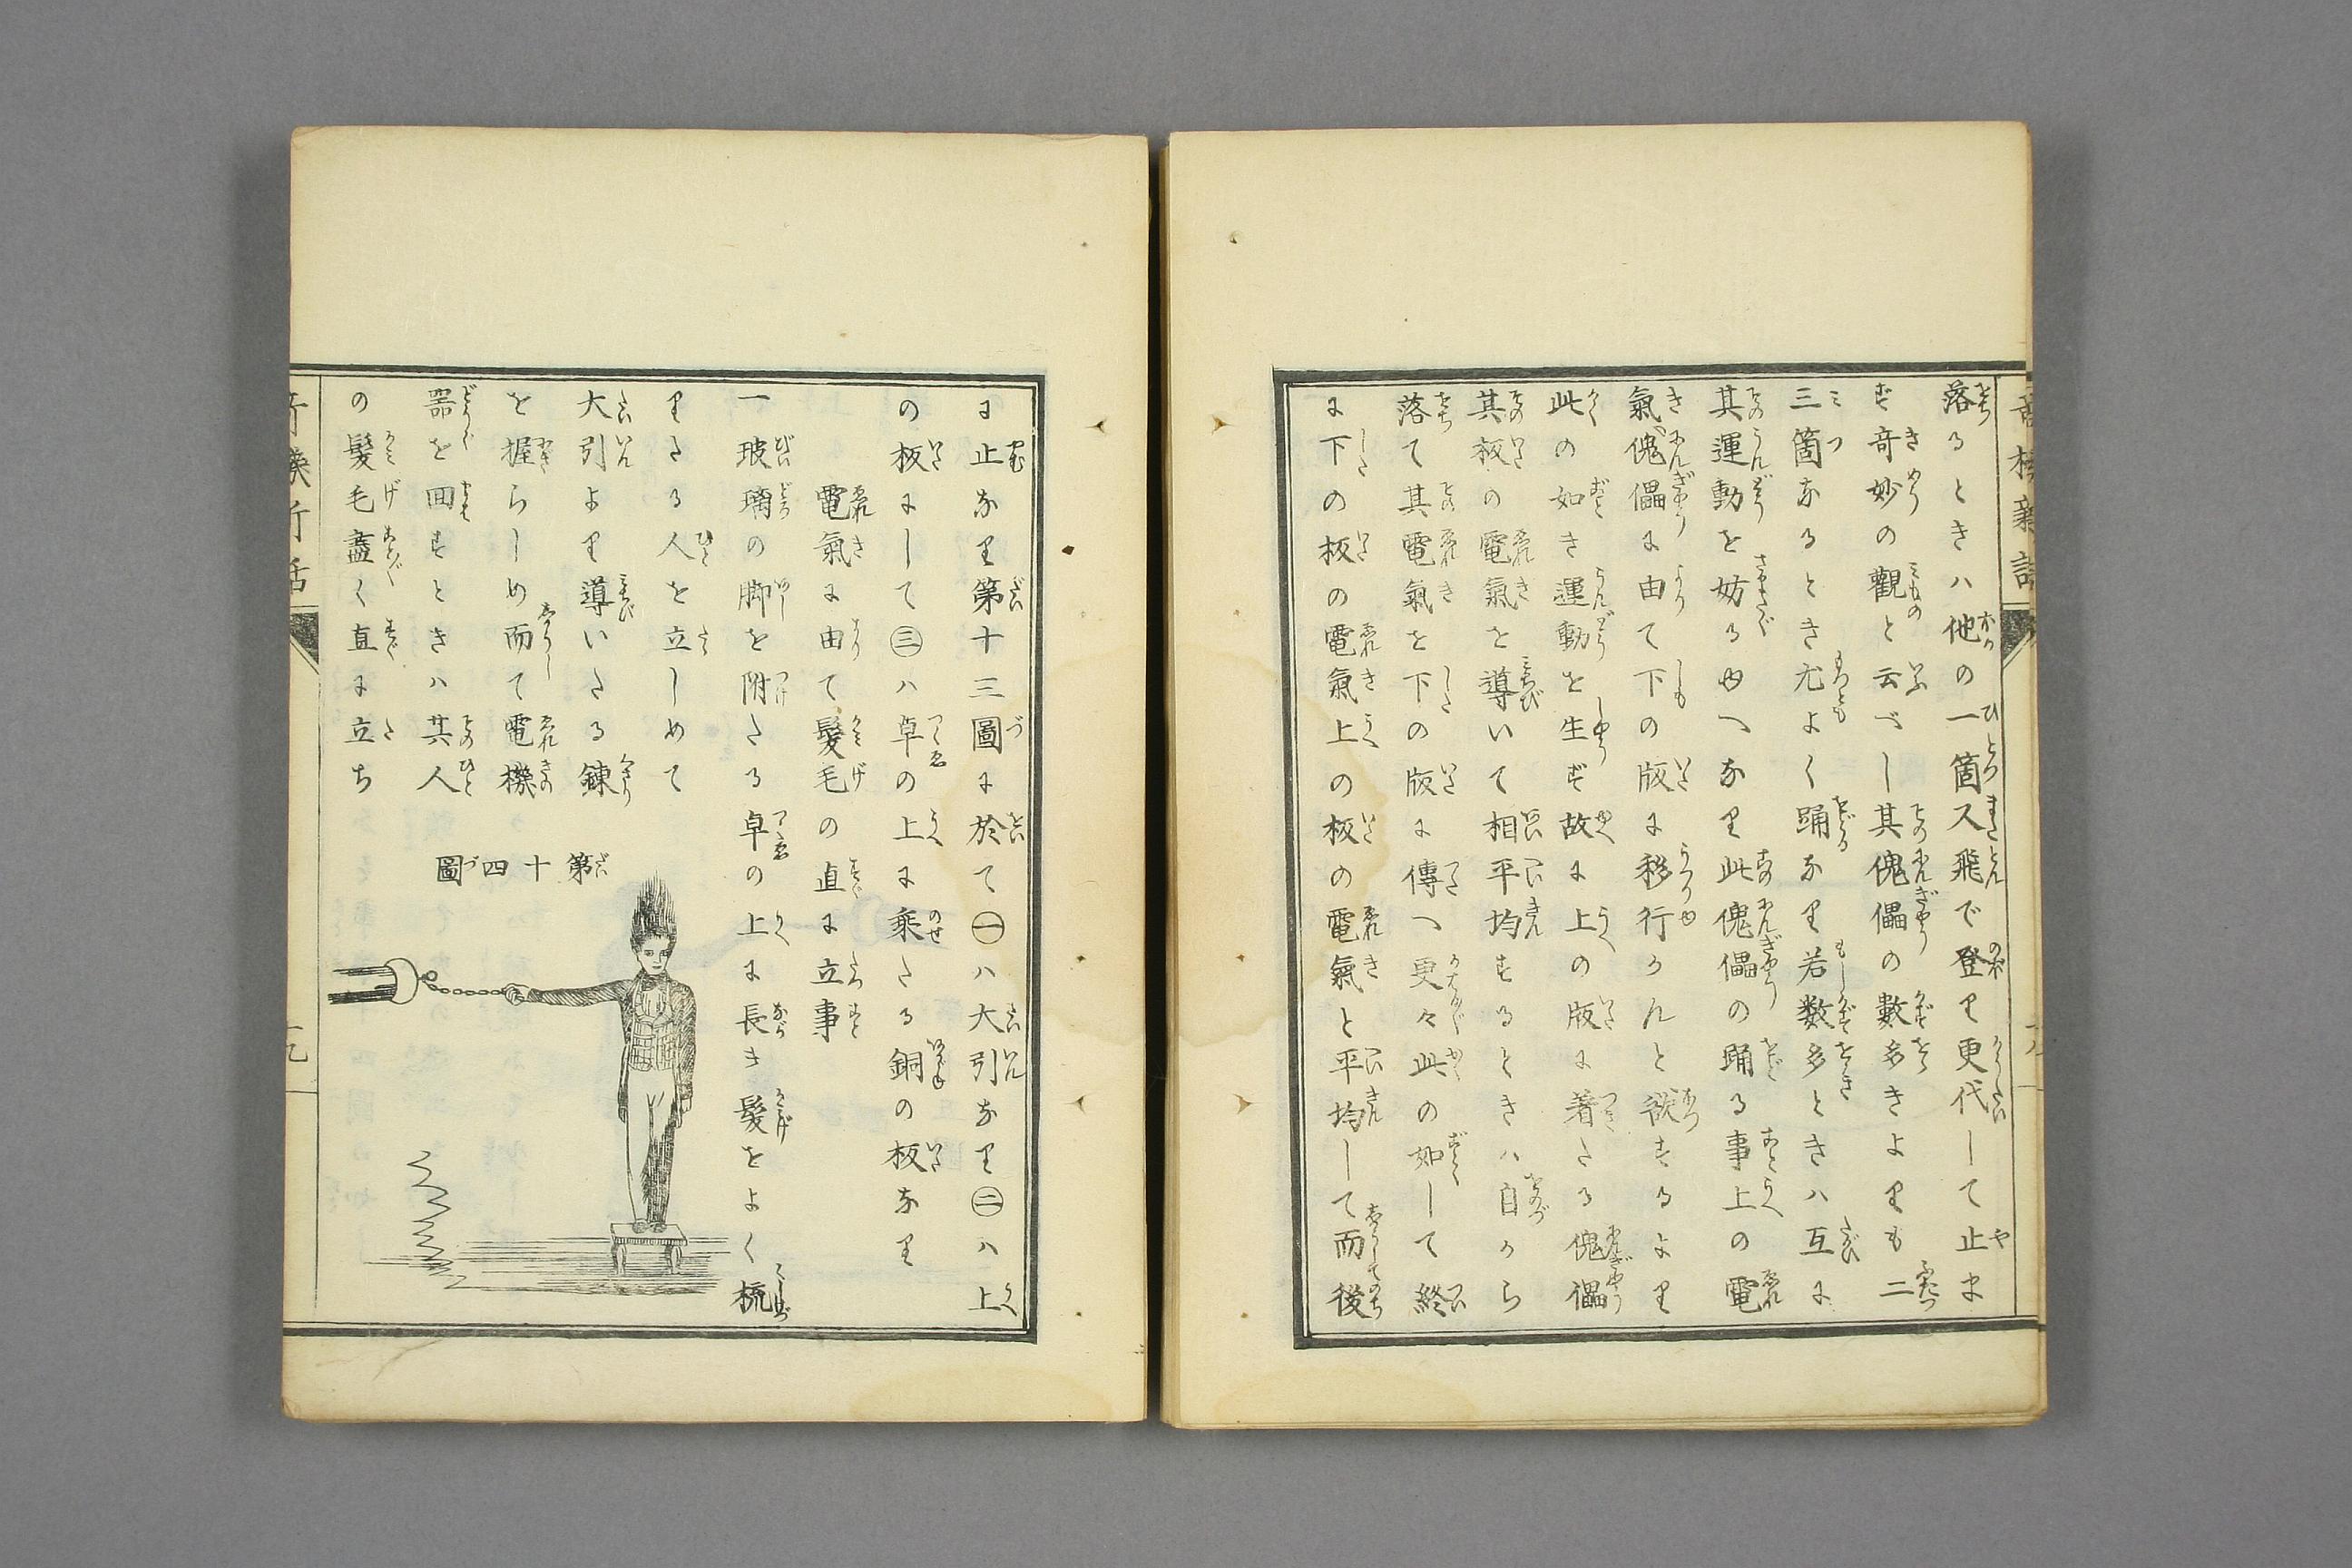 落るときハ他の一箇又飛で登り更代して止ま
ず奇妙の觀と云べし其傀儡の數多きよりも二
三箇なるとき尤よく踊なり若数多ときハ互に
其運動を妨るゆへなり此傀儡の踊る事上の電
氣傀儡に由て下の版に移行かんと欲するより
此の如き運動を生ず故に上の版に着たる傀儡
其板の電氣を導いて相平均するときハ自から
落て其電氣を下の版に傳へ更々此の如して終
に下の板の電氣上の板の電氣と平均して而後
に止なり第十三圖に於て㊀ハ大引なり㊁ハ上
の板にして㊂ハ卓の上に乘たる銅の板なり
電氣に由て髮毛の直に立事
一玻璃の脚を附たる卓の上に長き髮をよく梳
りたる人を立しめて
大引より導いたる鏈
を握らしめ而て電機
器を囬すときハ其人
の髮毛盡く直に立ち
第十四圖